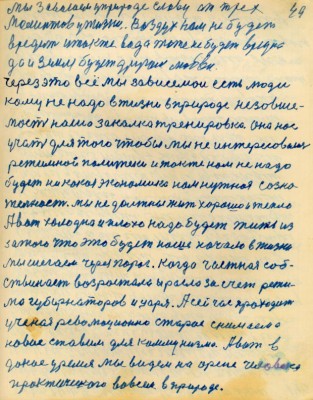 мы завоюем природе славу от трех 49
моментов у жизни. Воздух нам не будет
вредит и также вода тоже не будет вредна
да и земли будет другая любви.
Через это всё мы зависемои есть люди
кому не надо в жизни в природе независие-
мость наша закалка тренировка. Она нас
учать для того чтобы мы не интересовались
режимной политики и также нам не надо
будет никакая экономика нам нужная созна-
тельность. мы не должны жит хорошо и тепло
А вот холодна и плохо надо будет жить из
за того что это будет наше начало в жизни
мы шагаем через порог. Когда частная соб-
ственност возростала и расла за счет режи-
ма губирнаторов и царя. А сейчас проходит
ученая революционно старае снимаем а
новае ставим для коммунизма. А вот в
данае время мы видем на арене человека
практического вовсем в природе.